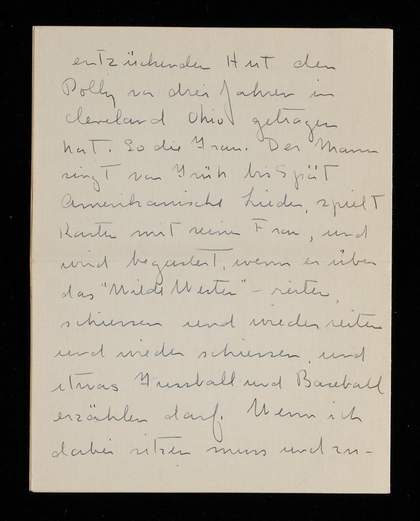 entzückenden Hut den
Polly vor drei Jahren in
Cleveland Ohio getragen
hat. So die Frau. Der Mann
singt von Früh bis Spät
Amerikanische Lieder, spielt
Karten mit seiner Frau, und
wird begeistert, wenn er über
das "Wilde Westen" – reiten,
schiessen und wieder reiten
und wieder schiessen, und
etwas Fussball und Baseball
erzählen darf. Wenn ich
dabei sitzen muss und zu-